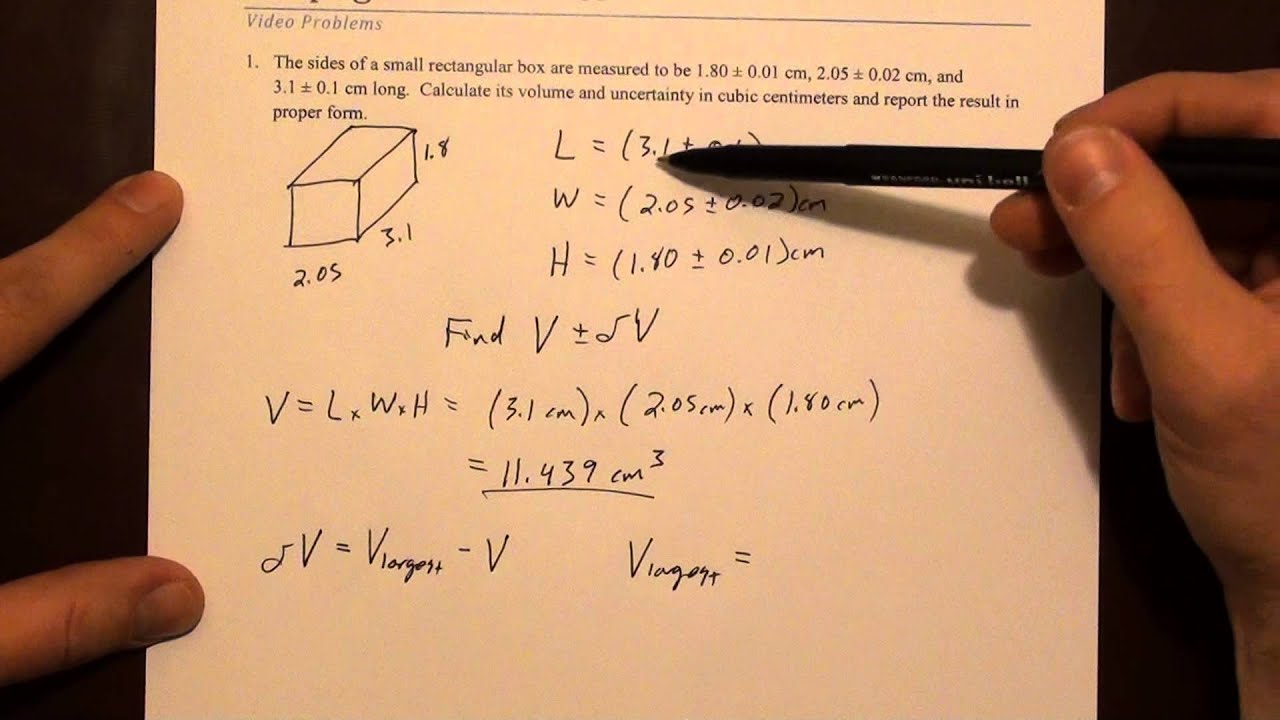 Video Problems
1. The sides of a small rectangular box are measured to be 1.80 ± 0.01 cm, 2.05 ± 0.02 cm, and
3.1 ± 0.1 cm long. Calculate its volume and uncertainty in cubic centimeters and report the result in
proper form.
1.8
3.1
2.05
L = (3.1 ±
W = (2.05 ± 0.02)cm
H = (1.80 ± 0.01)cm
Find V ± δV
V = L x W x H = (3.1 cm) x (2.05cm) x (1.80cm)
= 11.439 cm³
δV = Vlargest - V
Vlagest =
uni-ball